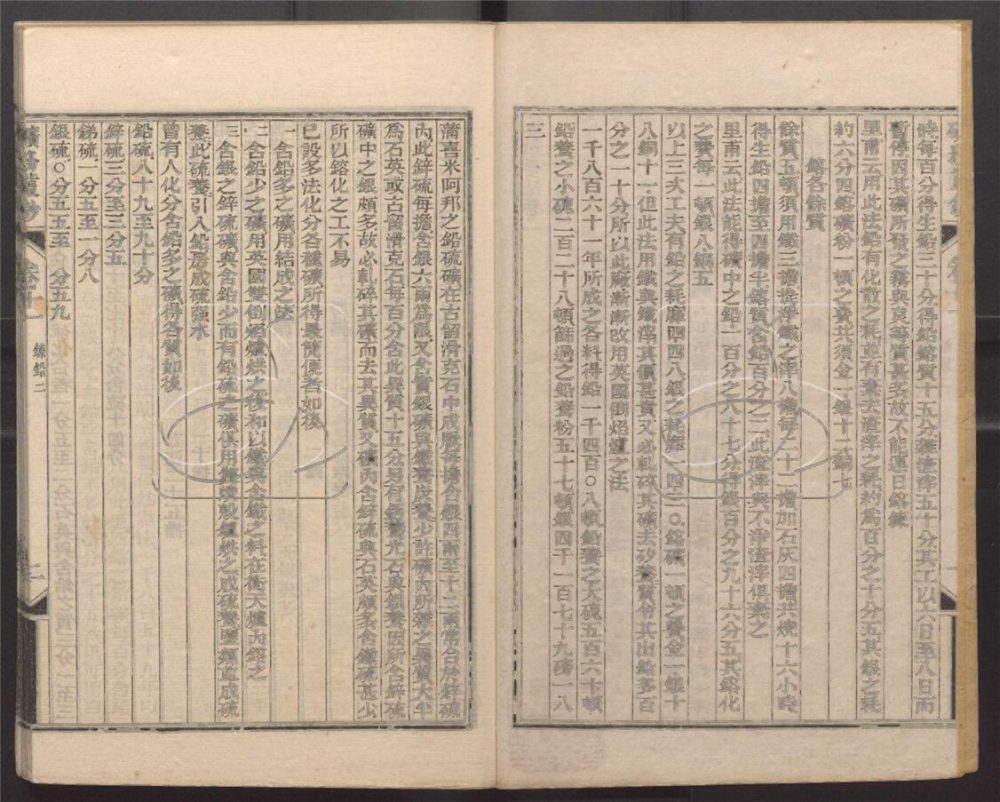 時每百分得生鉛三十分得鉛鎔質十五分雜渣滓五十分其工以六日至八日而
暫停因其礦所發之霧與臭等質甚劣故不能連日鎔鍊
里甫云用此法鉛有化散之耗並有棄去渣滓之耗約為百分之十分五其銀之耗
約六分四鎔礦粉一頓之費共須金一銀十二銅七
鎔各餘質
餘質五頓須用鐵三擔提淨鐵之滓八擔每二十一擔加石灰四擔共燒十六小時
得生鉛四擔至四擔半鎔質含鉛百分之二此渣滓與不淨渣滓俱棄之
里甫云此法能得礦中之鉛一百分之八十七分得銀百分之九十六分五其鎔化
之費每一頓銀八銅五
以上三次工夫有鉛之耗靡四四八銀之耗靡一四三〇鎔礦一頓之費金一銀十
八銅十一但此法用鐵與鐵滓其價甚貴又必軋碎其礦去矽養質令其出鉛多百
分之一十分所以此廠漸漸改用英國倒焰爐之法
一千八百六十一年所成之各料得鉛一千四百〇八頓鉛養之大磈五百六十頓
鉛養之小磈二百二十八頓篩過之鉛養粉五十七頓銀四千一百七十九磅一八
三
蒲喜米阿邦之鉛硫礦在古留滑克石中成脈每擔含銀四兩至十二兩常合於鋅硫
內此鋅硫每擔含銀六兩為限又含質銀礦與鐵養炭養少許礦內所雜之異質大半
為石英或古留滑克石每百分含此異質十五分另有鐵養光石與鋇養因所含鋅硫
礦中之銀頗多故必軋碎其礦而去其異質又礦內含鋅硫與石英頗多含鐵硫甚少
所以鎔化之工不易
已設多法化分各種礦所得最簡便者如後
一 含鉛多之礦用結成之法
二 含鉛少之礦用英國雙倒焰爐烘之後和以鐵與含鐵之料在衝天爐內鎔之
三 含銀之鋅硫礦與含鉛少而有鉛硫之礦俱用鋅礦殼爐烘之成硫養因須造成硫
養此硫養引入鉛房成硫強水
曾有人化分含鉛多之礦得各質如後
鉛硫八十九至九十分
鋅硫三分至三分五
銻硫一分五至一分八
銀硫〇分五五至〇分五九
卷十
鍊鉛二
二